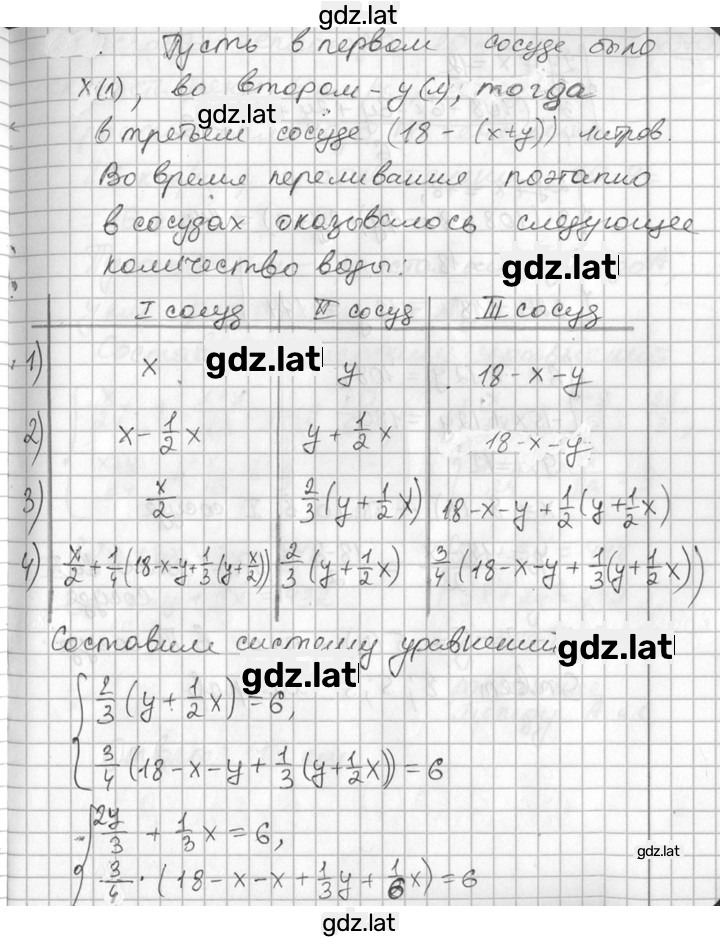 gdz.lat
Пусть в первом сосуде было
x(л), во втором - y(л), тогда
gdz.lat
в третьем сосуде (18 - (x+y)) литров.
Во время переливания поэтапно
в сосудах оказывалось следующее
количество воды:
gdz.lat
I сосуд II сосуд III сосуд
gdz.lat
1) x y 18 - x - y
2) x - 1/2 x y + 1/2 x 18 - x - y
3) x/2 2/3 (y + 1/2 x) 18 - x - y + 1/2 (y + 1/2 x)
4) x/2 + 1/4 (18 - x - y + 1/3 (y + x/2)) 2/3 (y + 1/2 x) 3/4 (18 - x - y + 1/3 (y + 1/2 x))
Составим систему уравнений
gdz.lat
gdz.lat
{ 2/3 (y + 1/2 x) = 6,
3/4 (18 - x - y + 1/3 (y + 1/2 x)) = 6
{ 2y/3 + 1/3 x = 6,
gdz.lat
3/4 · (18 - x - x + 1/3 y + 1/6 x) = 6
gdz.lat